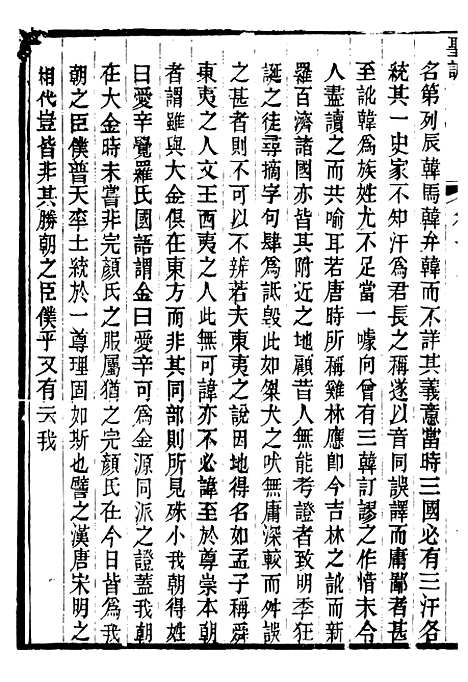 聖訓
名第列辰韓馬韓弁韓而不詳其義意當時三國必有三汗各
統其一史家不知汗爲君長之稱遂以音同誤譯而庸鄙者甚
至訛韓爲族姓尤不足當一噱向曾有三韓訂謬之作惜未令
人盡讀之而共喻耳若唐時所稱雞林應卽今吉林之訛而新
羅百濟諸國亦皆其附近之地顧昔人無能考證者致明季狂
誕之徒尋摘字句肆爲詆毀此如桀犬之吠無庸深較而舛誤
之甚者則不可以不辨若夫東夷之說因地得名如孟子稱舜
東夷之人文王西夷之人此無可諱亦不必諱至於尊崇本朝
者謂雖與大金俱在東方而非其同部則所見殊小我朝得姓
曰愛辛覺羅氏國語謂金曰愛辛可爲金源同派之證蓋我朝
在大金時未嘗非完顏氏之服屬猶之完顏氏在今日皆爲我
朝之臣僕普天率土統於一尊理固如斯也譬之漢唐宋明之
相代豈皆非其勝朝之臣僕乎又有云我